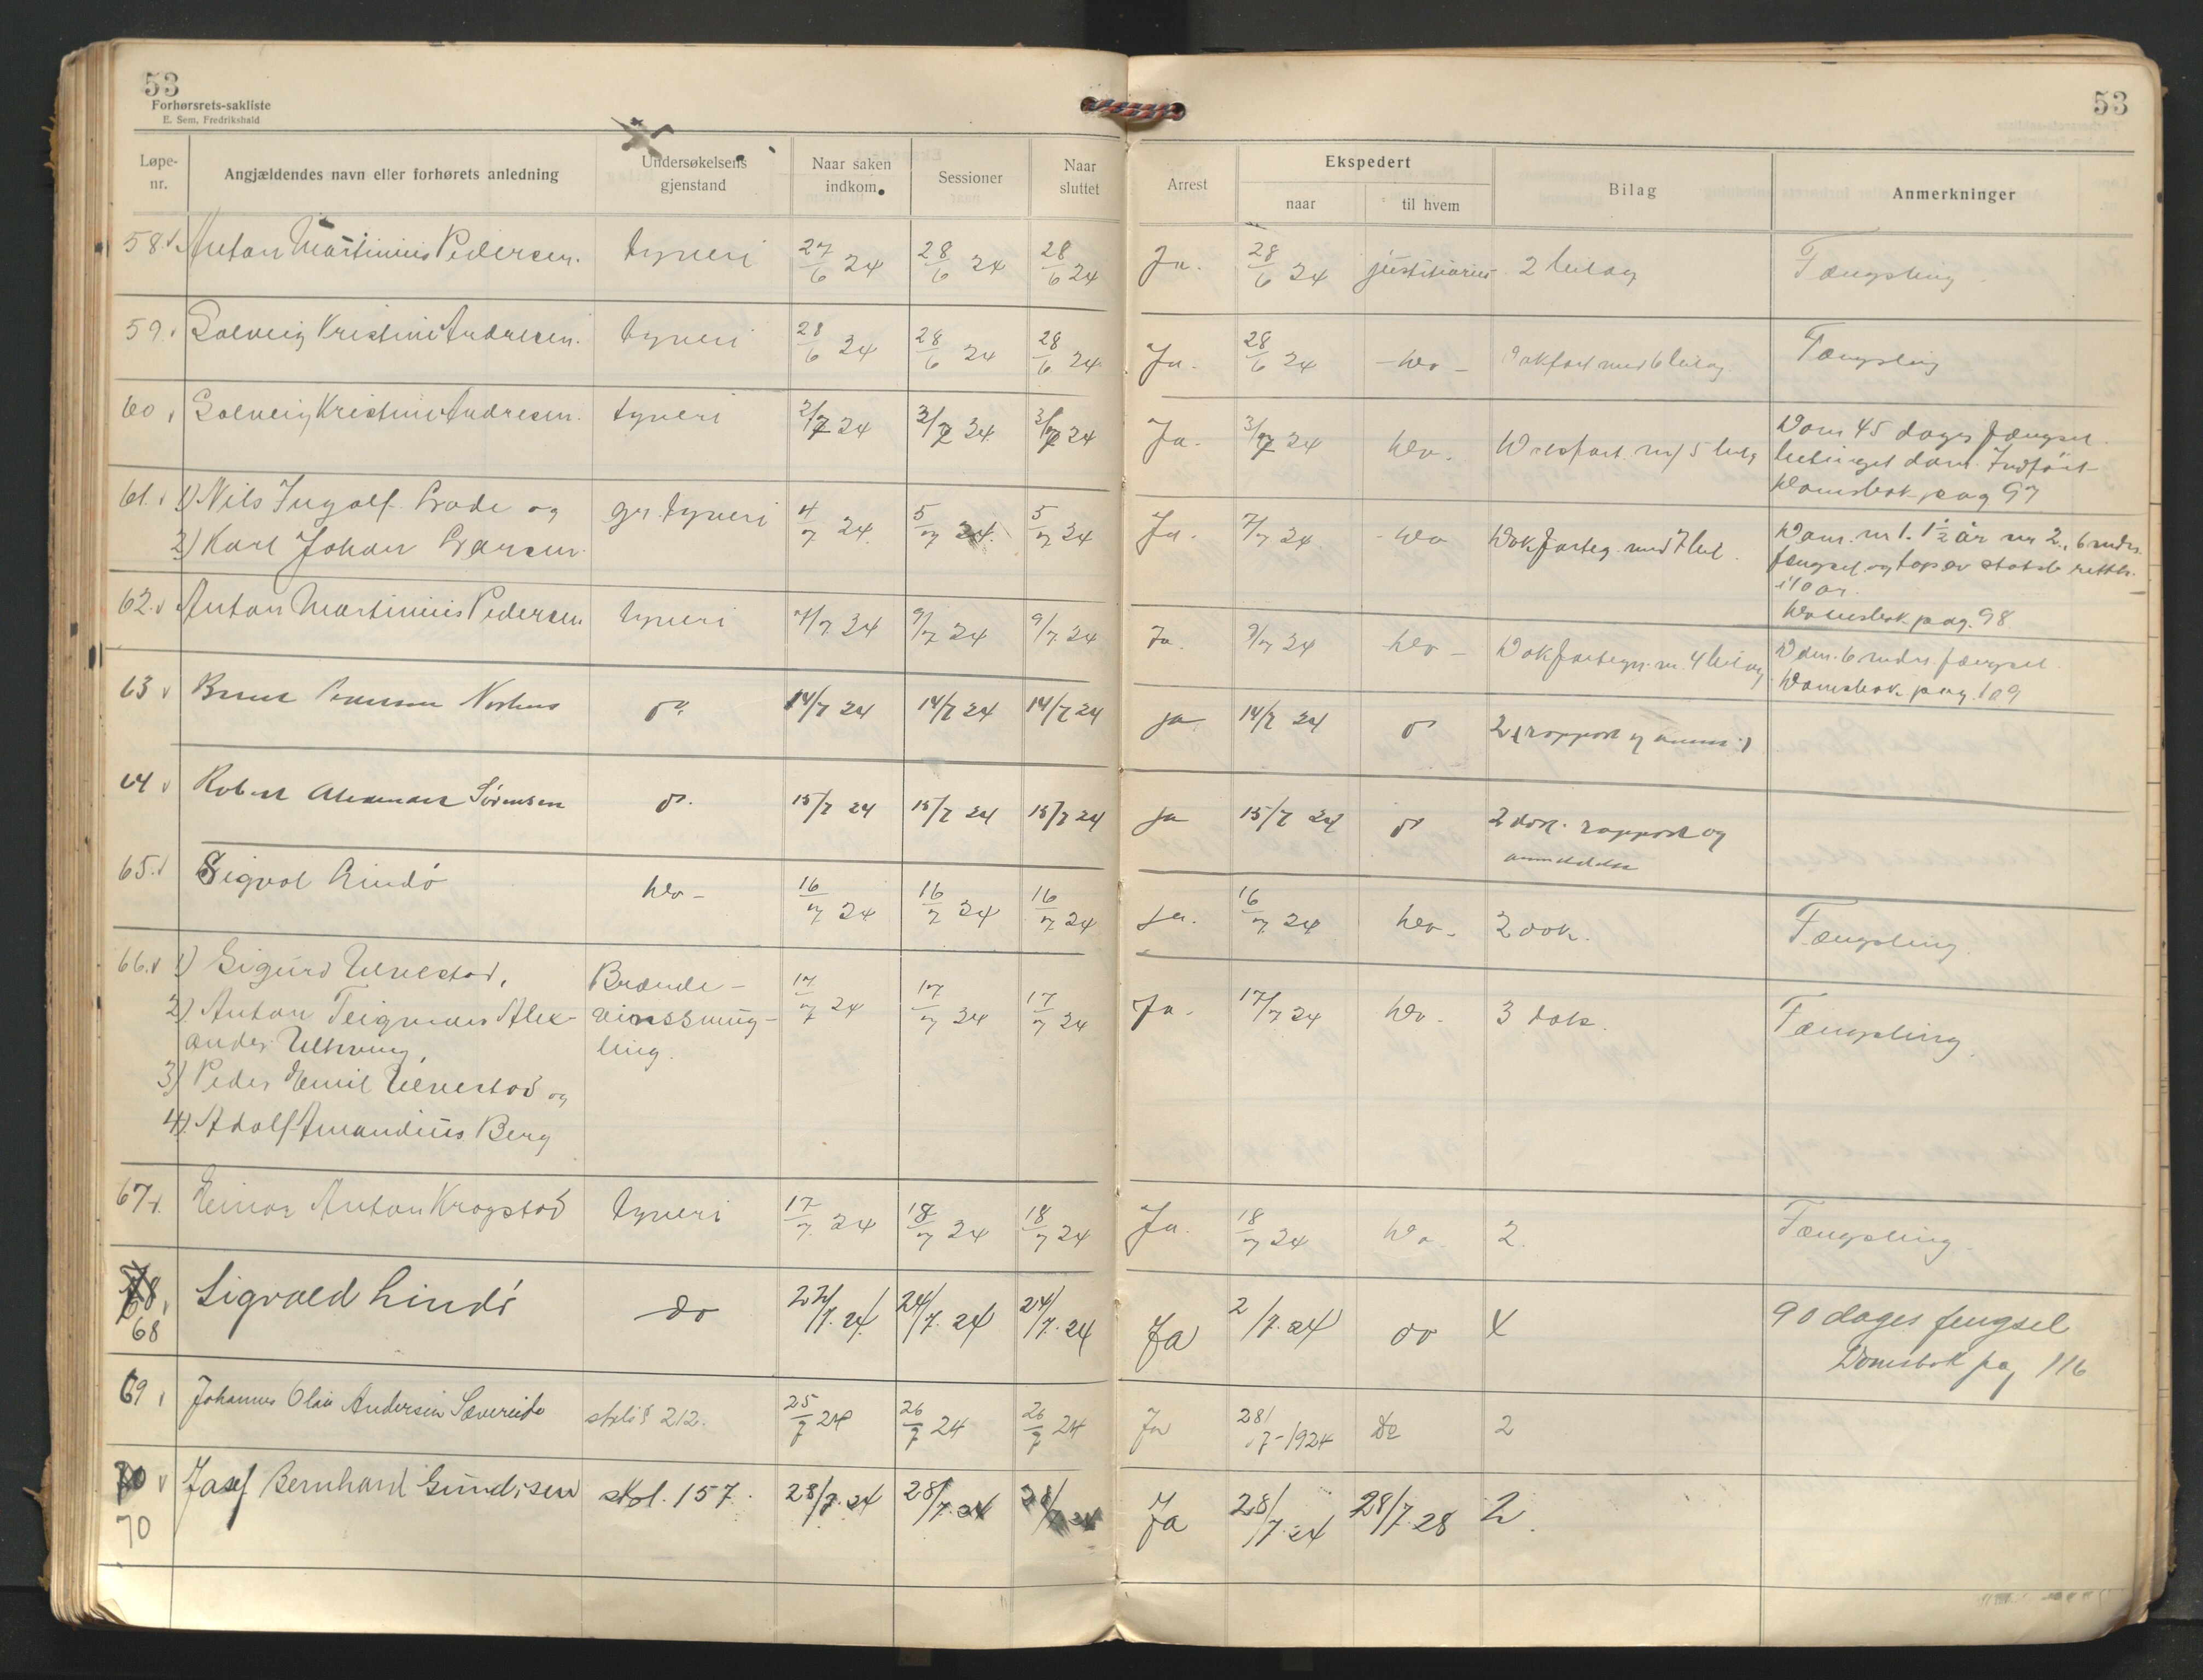 53
Forhørsrets-sakliste
E. Sem, Fredrikshald
Løpe-nr.
Angjældendes navn eller forhørets anledning
Undersøkelsens gjenstand
Naar saken indkom.
Sessioner
Naar sluttet
58. Anton Martinius Pedersen. tyveri 27/6 24 28/6 24 28/6 24
59. Solveig Kristine Andresen. tyveri 28/6 24 28/6 24 28/6 24
60 Solveig Kristine Andresen. tyveri 2/7 24 3/7 24 3/7 24
61. 1) Nils Ingolf og gr. tyveri 4/7 24. 5/7 24. 5/7 24
2) Karl Johan Larsen
62. Anton Martinius Pedersen tyveri 7/7 24 9/7 24 9/7 24
63 Nerhus do. 14/7 24 14/7 24 14/7 24
64 Robert Alexander Sørensen do. 15/7 24 15/7 24 15/7 24
65. Sigvol Lindö do - 16/7 24 16/7 24 16/7 24
66. 1) Sigurd Ulvestad, Brænde- 17/7 24 17/7 24 17/7 24
2) Anton Teigmar Alex- vinssmug-
ander ling.
3) Peder Emil Ulvestad og
4) Adolf Amandius Berg
67. Einar Anton Krogstad tyveri 17/7 24 18/7 24 18/7 24
68 Sigvald Lindö do 22/7. 24 24/7. 24 24/7. 24
68
69 Johannes Olai Andersen Sævereide strl § 212. 25/7 24 26/7 24 26/7 24
70 Josef Bernhard Gundisen stol. 157. 28/7. 24 28/7. 24 28/7 24
70
53
Arrest
Ekspedert
naar
til hvem
Bilag
Anmerkninger
Ja. 28/6 24 justitiarius 2 bilag Fængsling
Ja. 28/6 24 - do - Dokfort med 6 bilag. Fængsling
Ja. 3/7 24 do. m/ 5 bilag Dom 45 dages fængsel.
betinget dom. Indført
Domsbok pag 97
Ja. 7/7 24 - do Dokforteg. med 7 bil. Dom. nr 1. 1 1/2 år nr 2. 6 mdrs.
fængsel og tap av statsb. retth.
i 10 år.
Domsbok pag. 98
Ja. 9/7 24 do - Dokfortegn. m. 4 bilag Dom. 6 mdrs. fængsel.
Domsbok pag. 109
ja 14/7 24 do 2 (rapport og anm.)
ja 15/7 24 do 2 dok. rapport og
anmeldelse
ja. 16/7 24 do. 2 dok. Fængsling
Ja. 17/7 24 do. 3 dok. Fængsling.
Ja. 18/7 24 do. 2. Fængsling.
Ja 2 /7. 24 do 4 90 dages fengsel
Domsbok pag 116
Ja 28/7-1924 Do 2
Ja 28/7. 24 28/7. 28 2.